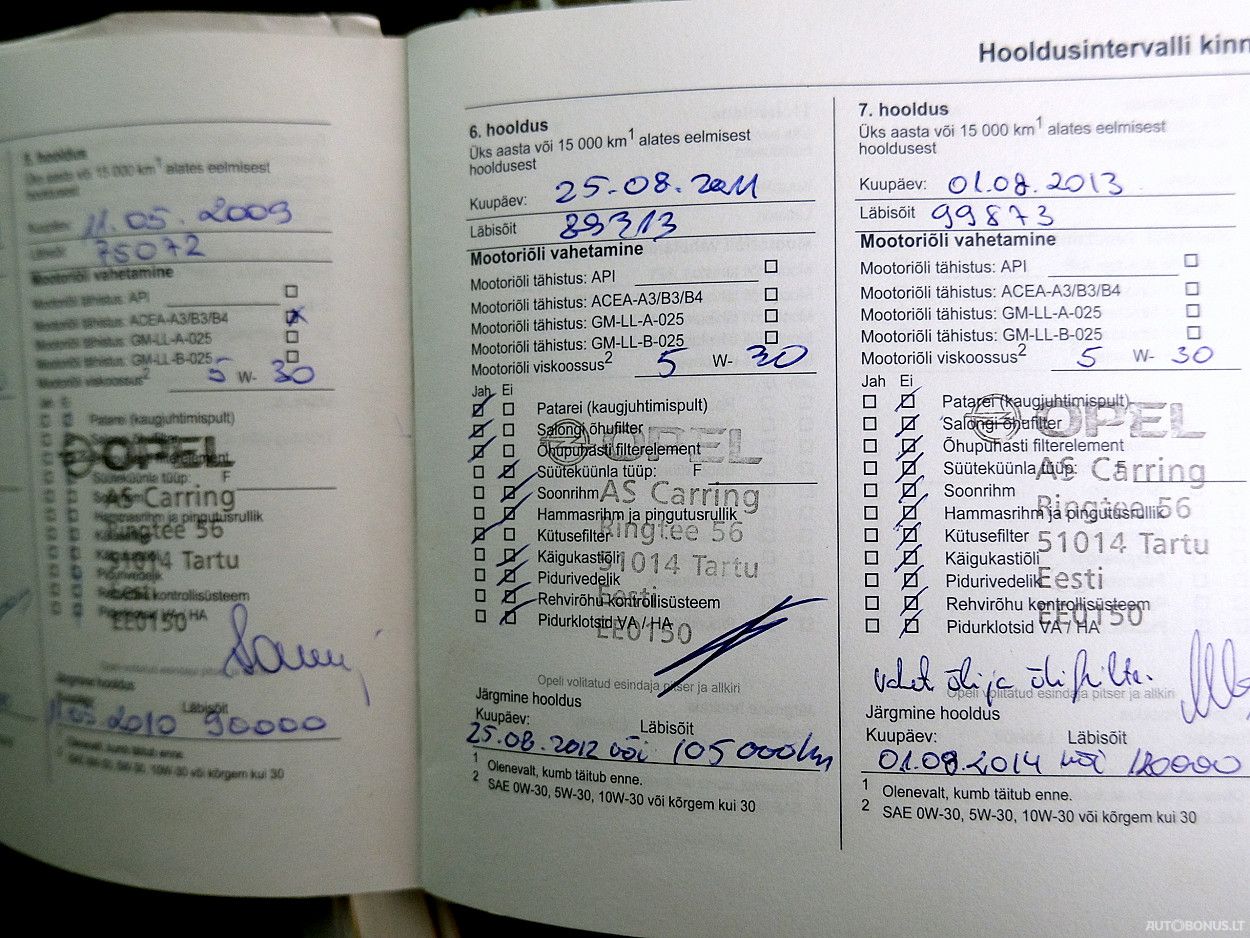 Hooldusintervalli kinn
5. hooldus
Üks aasta või 15 000 km¹ alates eelmisest
hooldusest
Kuupäev: 11.05.2009
Läbisõit 75072
Mootoriõli vahetamine
Mootoriõli tähistus: API
Mootoriõli tähistus: ACEA-A3/B3/B4
Mootoriõli tähistus: GM-LL-A-025
Mootoriõli tähistus: GM-LL-B-025
Mootoriõli viskoossus² 5 W- 30
Patarei (kaugjuhtimispult)
OPEL
Süüteküünla tüüp: F
AS Carring
Hammasrihm ja pingutusrullik
Ringtee 56
51014 Tartu
Käigukastiõli
Pidurivedelik
Rehvirõhu kontrollisüsteem
EE0150
Opeli volitatud esindaja
Järgmine hooldus
Läbisõit
11.05.2010 90000
¹ Olenevalt, kumb täitub enne.
² SAE 0W-30, 5W-30, 10W-30 või kõrgem kui 30
6. hooldus
Üks aasta või 15 000 km¹ alates eelmisest
hooldusest
Kuupäev: 25.08.2011
Läbisõit 89313
Mootoriõli vahetamine
Mootoriõli tähistus: API
Mootoriõli tähistus: ACEA-A3/B3/B4
Mootoriõli tähistus: GM-LL-A-025
Mootoriõli tähistus: GM-LL-B-025
Mootoriõli viskoossus² 5 W- 30
Jah Ei
Patarei (kaugjuhtimispult)
Salongi õhufilter
OPEL
Õhupuhasti filterelement
Süüteküünla tüüp: F
Soonrihm
AS Carring
Hammasrihm ja pingutusrullik
Ringtee 56
Kütusefilter
Käigukastiõli
51014 Tartu
Pidurivedelik
Eesti
Rehvirõhu kontrollisüsteem
Pidurklotsid VA / HA
EE0150
Opeli volitatud esindaja pitser ja allkiri
Järgmine hooldus
Kuupäev: Läbisõit
25.08.2012 või 105 000km
¹ Olenevalt, kumb täitub enne.
² SAE 0W-30, 5W-30, 10W-30 või kõrgem kui 30
7. hooldus
Üks aasta või 15 000 km¹ alates eelmisest
hooldusest
Kuupäev: 01.08.2013
Läbisõit 99873
Mootoriõli vahetamine
Mootoriõli tähistus: API
Mootoriõli tähistus: ACEA-A3/B3/B4
Mootoriõli tähistus: GM-LL-A-025
Mootoriõli tähistus: GM-LL-B-025
Mootoriõli viskoossus² 5 W- 30
Jah Ei
Patarei (kaugjuhtimispult)
Salongi õhufilter
OPEL
Õhupuhasti filterelement
Süüteküünla tüüp: F
AS Carring
Soonrihm
Hammasrihm ja pingutusrullik
Ringtee 56
Kütusefilter
51014 Tartu
Käigukastiõli
Pidurivedelik
Eesti
Rehvirõhu kontrollisüsteem
EE0150
Pidurklotsid VA / HA
vahet õli ja õlifilter.
Opeli volitatud esindaja pitser ja allkiri
Järgmine hooldus
Kuupäev: Läbisõit
01.08.2014 või 120000
¹ Olenevalt, kumb täitub enne.
² SAE 0W-30, 5W-30, 10W-30 või kõrgem kui 30
AUTOBONUS.LT